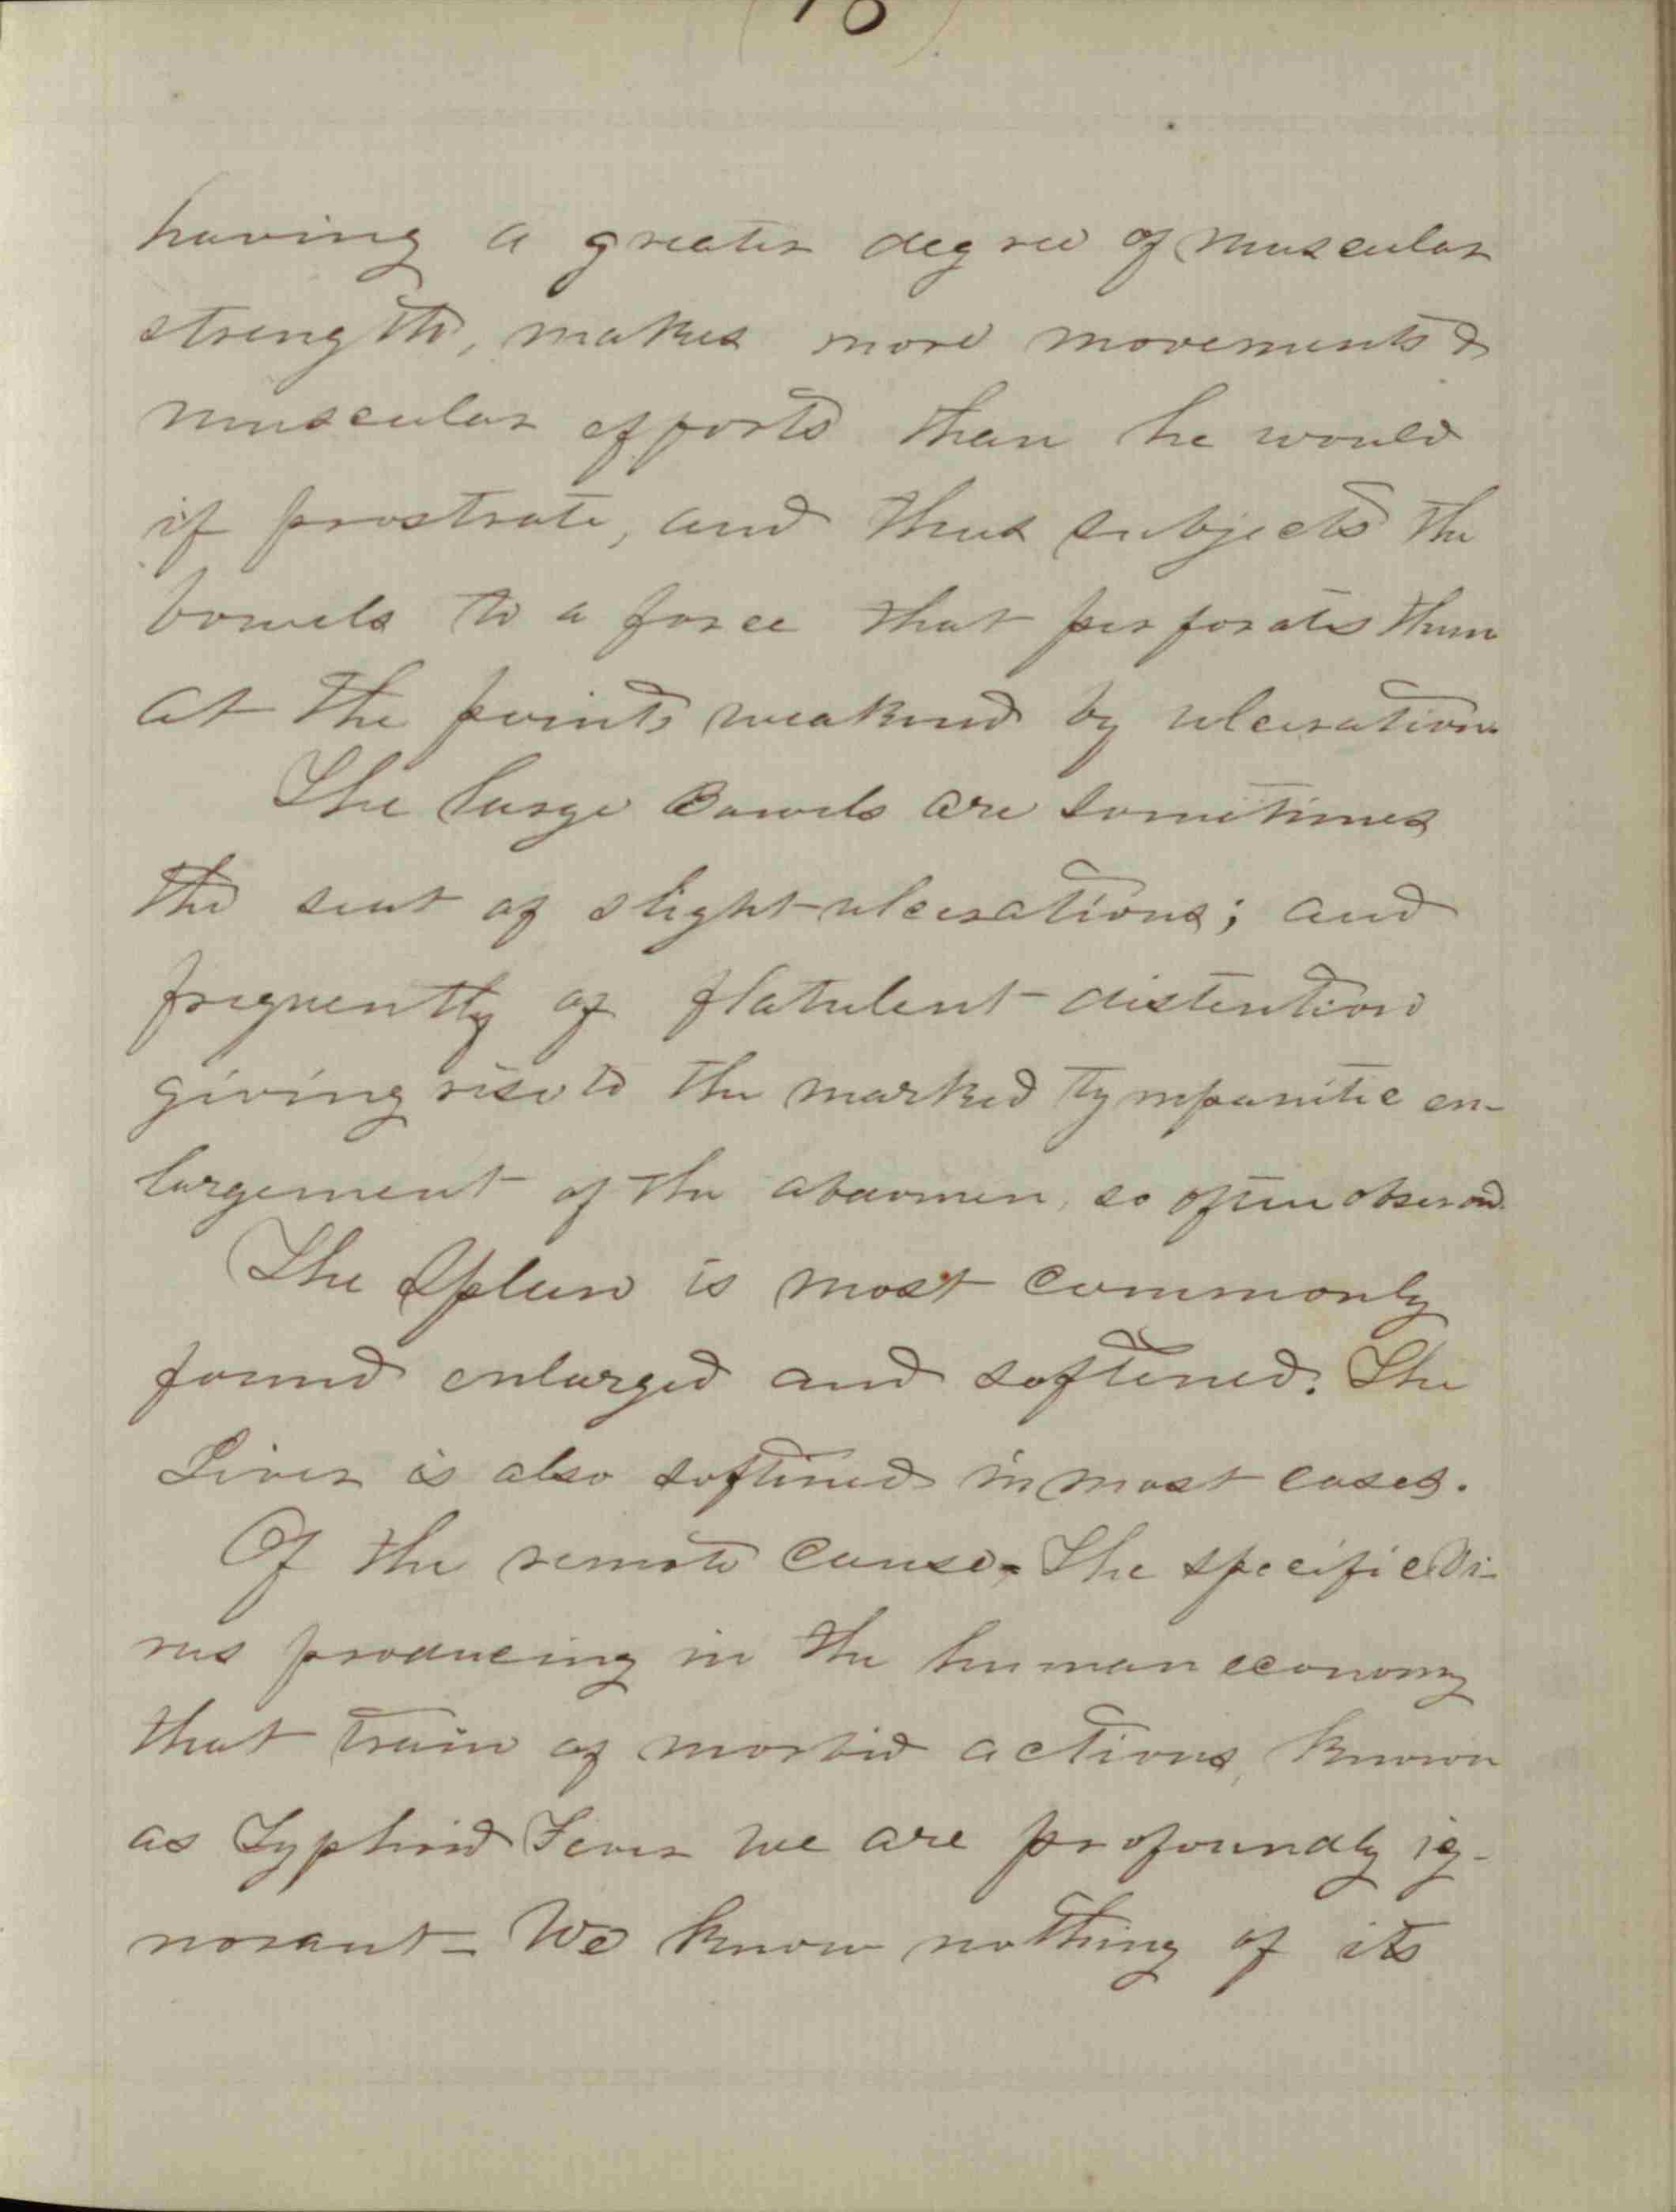 having a greater degree of muscular
strength, makes more movements &
muscular efforts than he would
if prostrate, and thus subjects the
bowels to a force that perforates them
at the points weakend by ulceration.
The large Bowels are sometimes
the seat of slight ulcerations; and
frequently of flatulent distention
giving rise to the marked tympanitic en-
largement of the abdomen, so often observed.
The Spleen is most commonly
found enlarged and softened. The
Liver is also softened in most cases.
Of the remote cause - The specific Vi-
rus producing in the human economy
that train of morbid actions, known
as Typhoid Fever we are profoundly ig-
norant - We know nothing of its